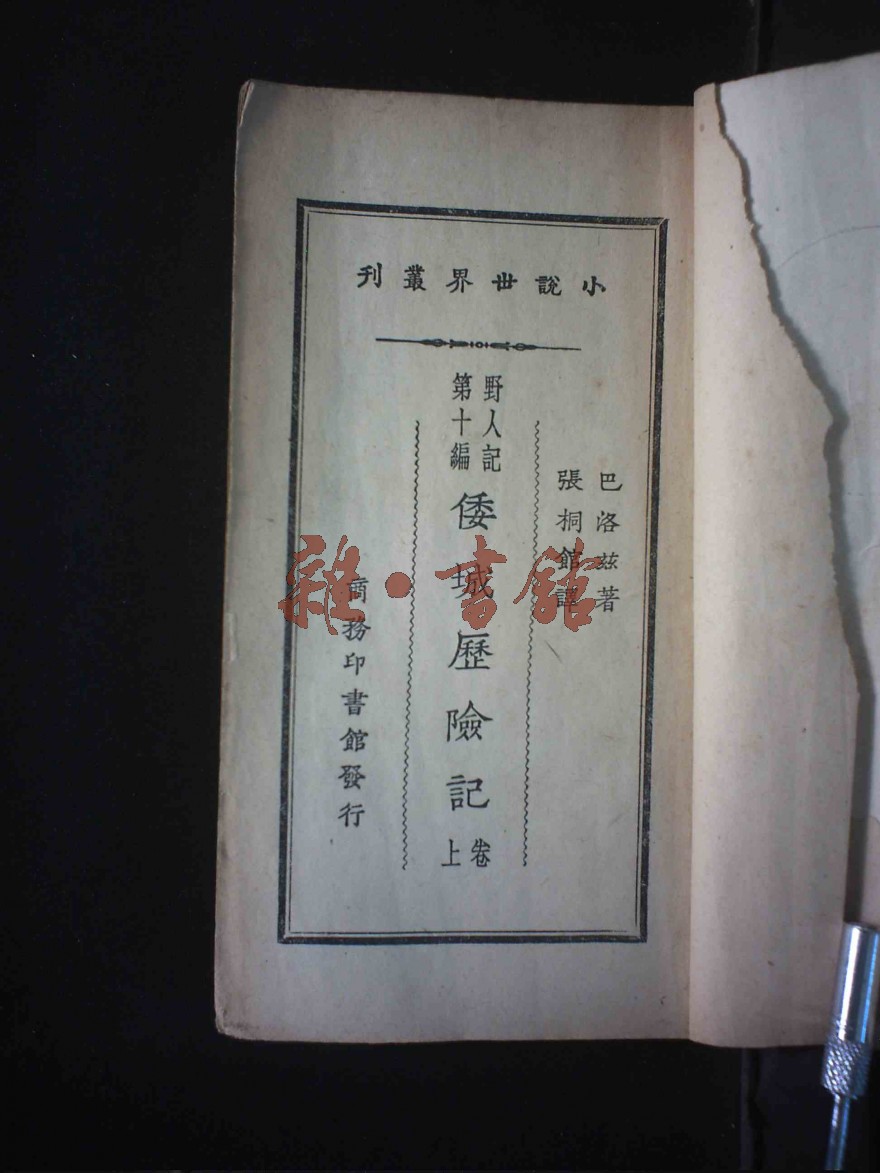 小說世界叢刊
巴洛茲著
張桐館譯
野人記
第十編
倭城歷險記
卷上
商務印書館發行
雜·書館